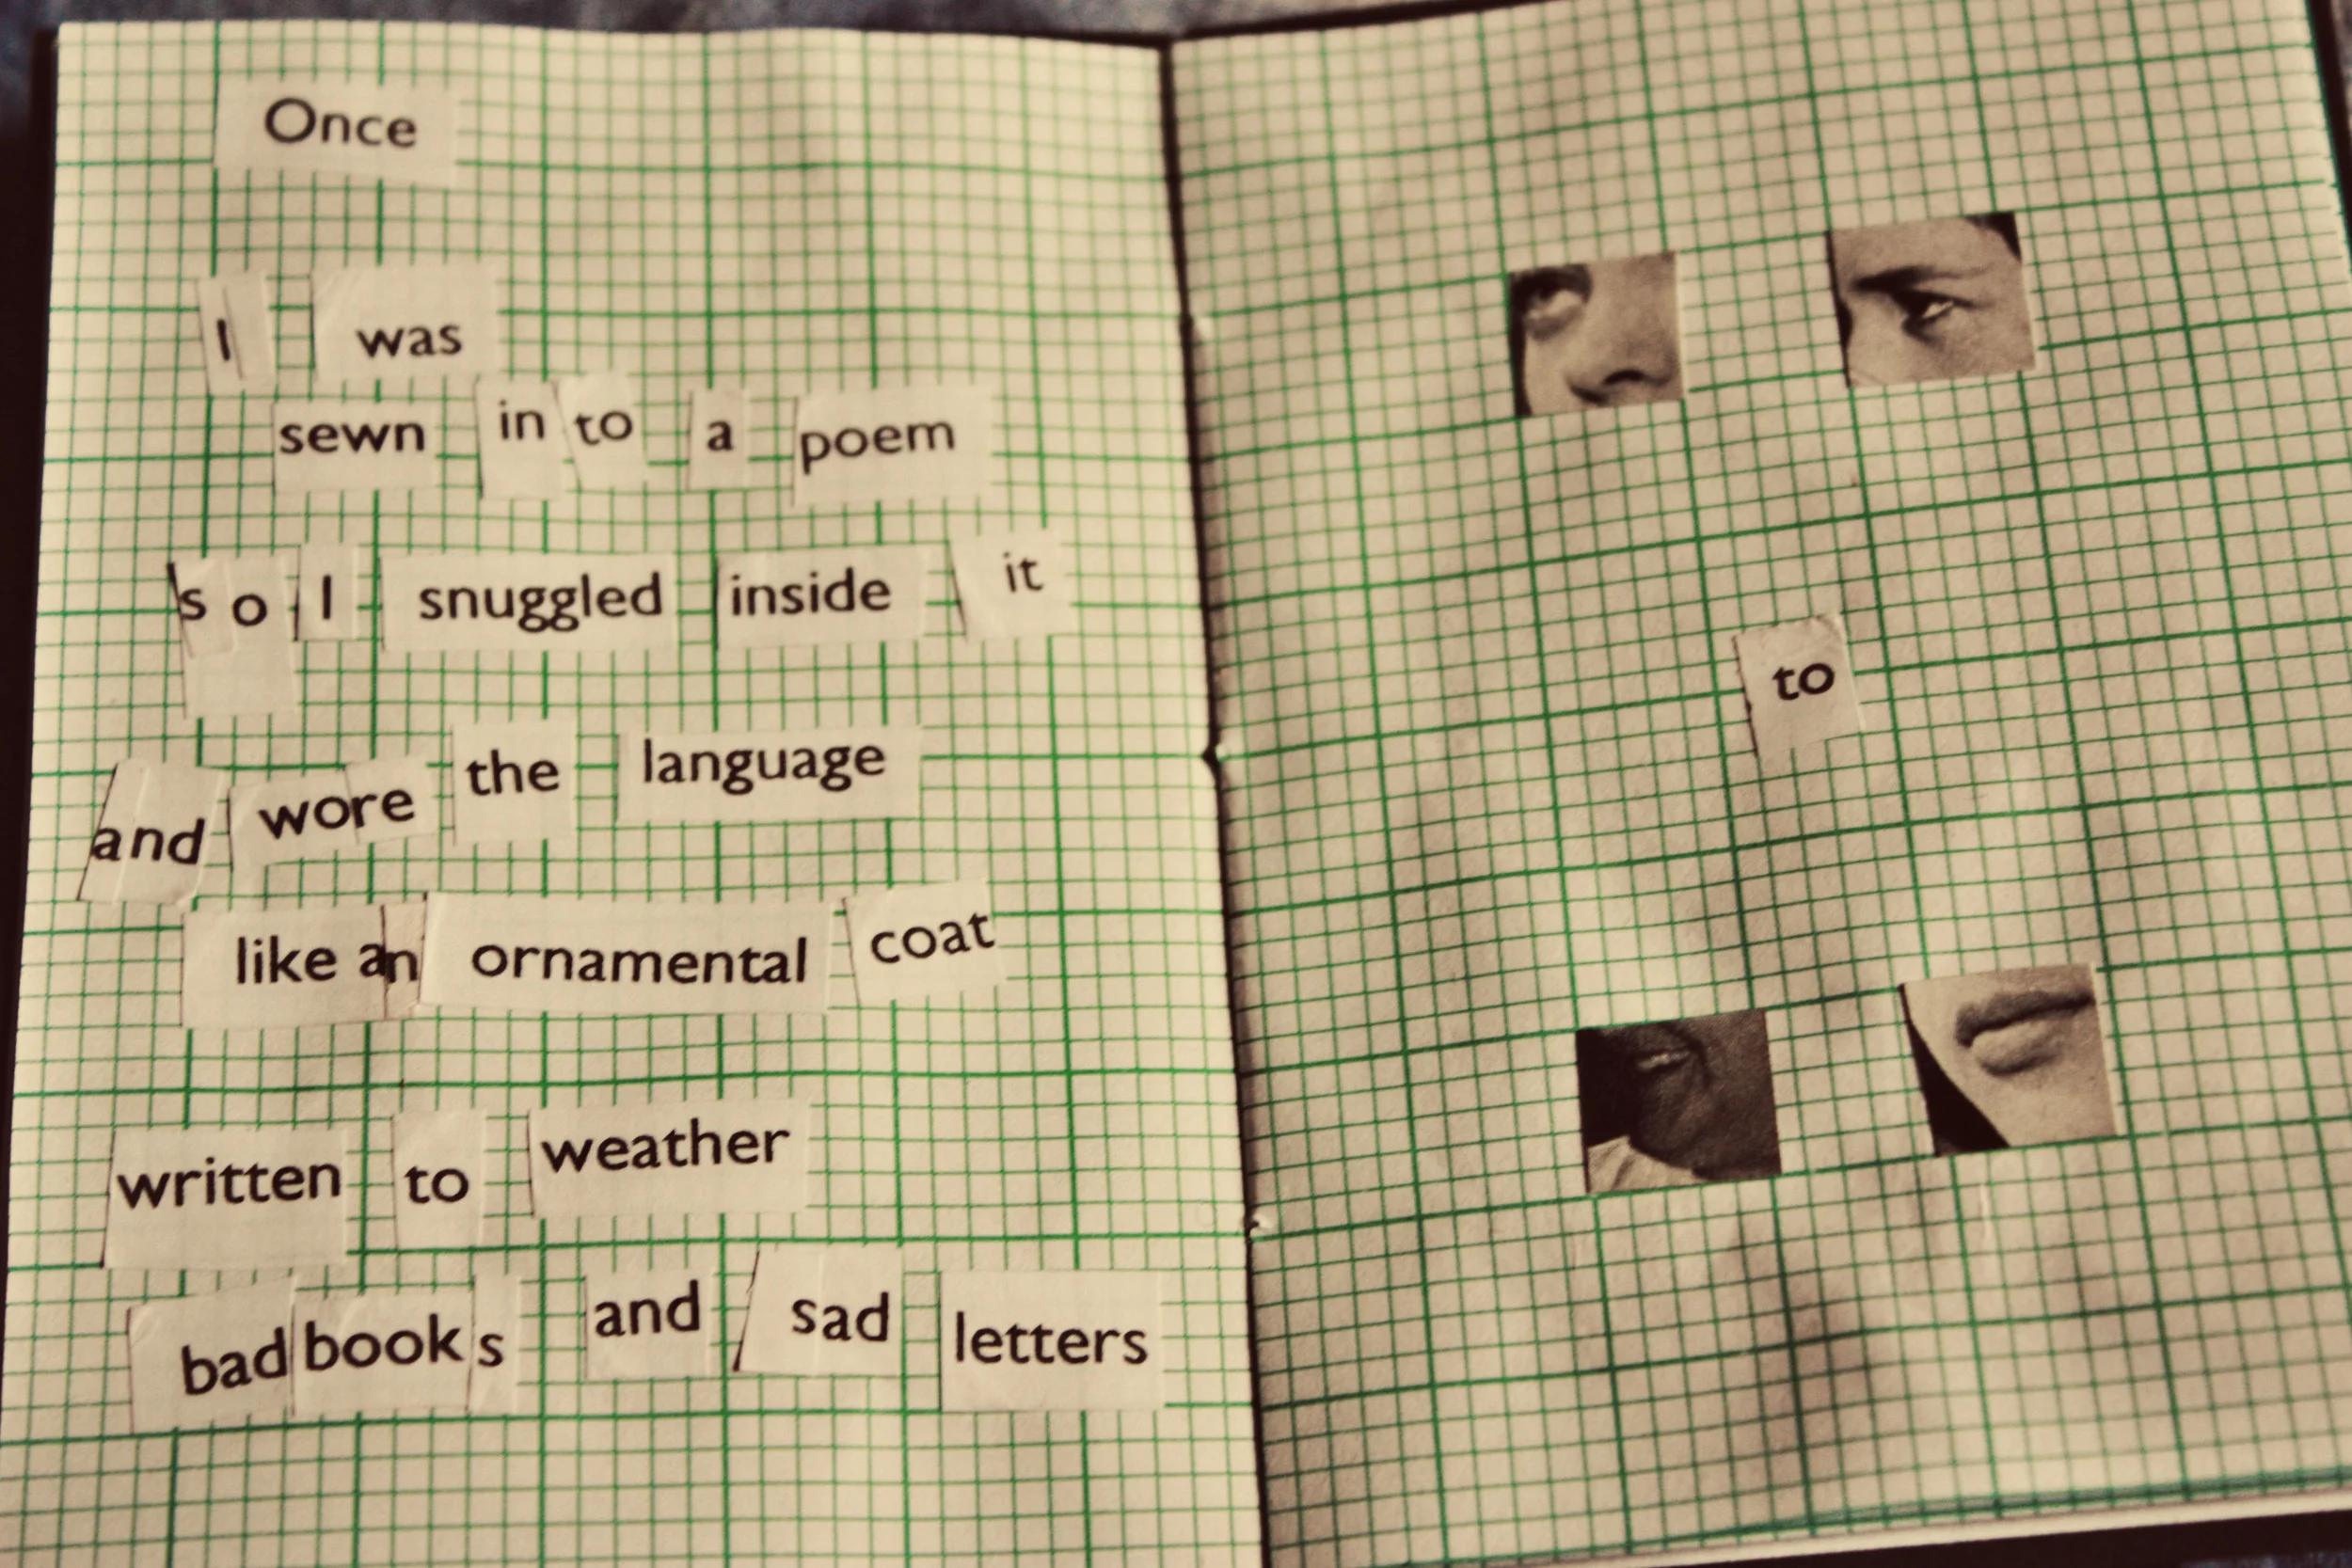 Once
I was
sewn in to a poem
so I snuggled inside it
and wore the language
like an ornamental coat
written to weather
bad books and sad letters
to